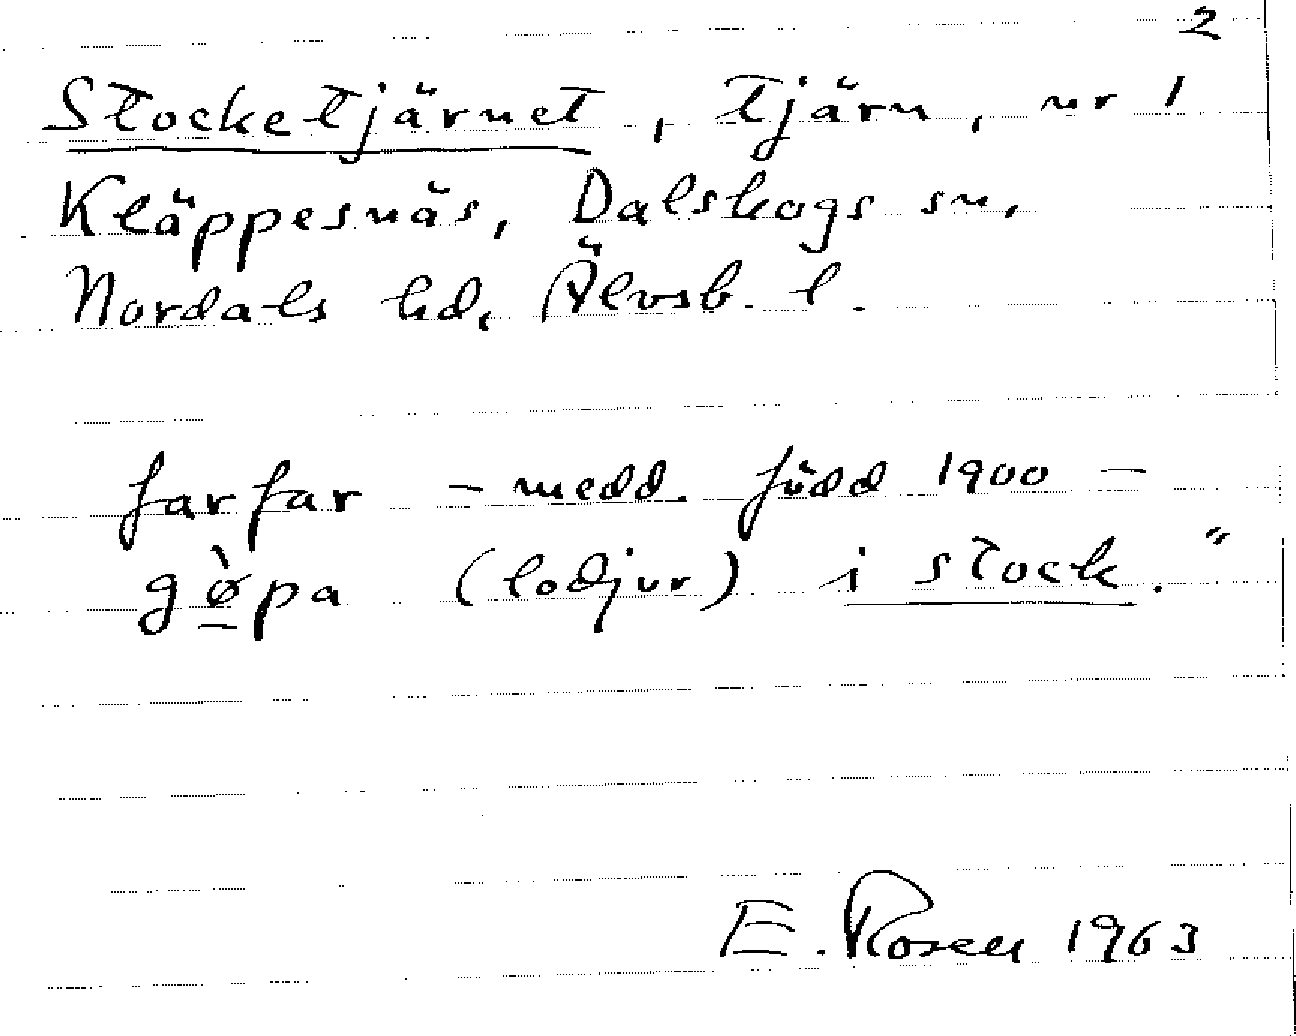 2
Stocketjärnet, tjärn, nr 1
Kläppesnäs, Dalskogs sn,
Nordals hd, Älvsb. l.
farfar – medd. född 1900 –
gø̀pa (lodjur) i stock."
E. Rosen 1963